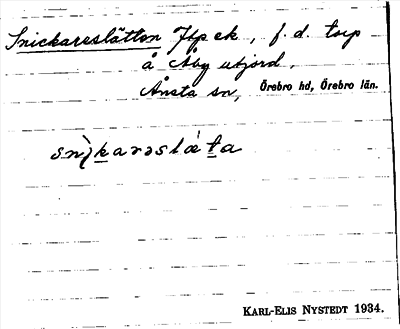 Snickareslätten Jfp ek, f.d. torp
å Åby utjord,
Ånsta sn, Örebro hd, Örebro län.
snìkarəslæta
KARL-ELIS NYSTEDT 1934.